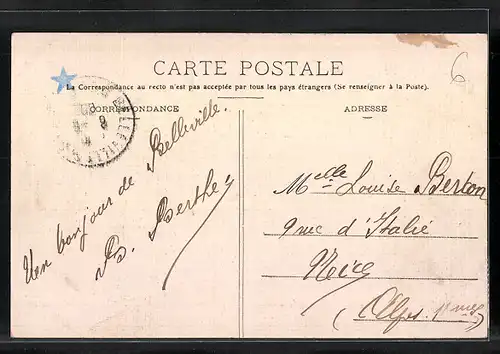 CARTE POSTALE
La Correspondance au recto n'est pas acceptée par tous les pays étrangers (Se renseigner à la Poste).
CORRESPONDANCE
ADRESSE
6
BELLEVILLE
Un bonjour de Belleville.
B. Berthe
Melle Louise Berton
9 rue d'Italie
Nice
(Alpes Mmes)